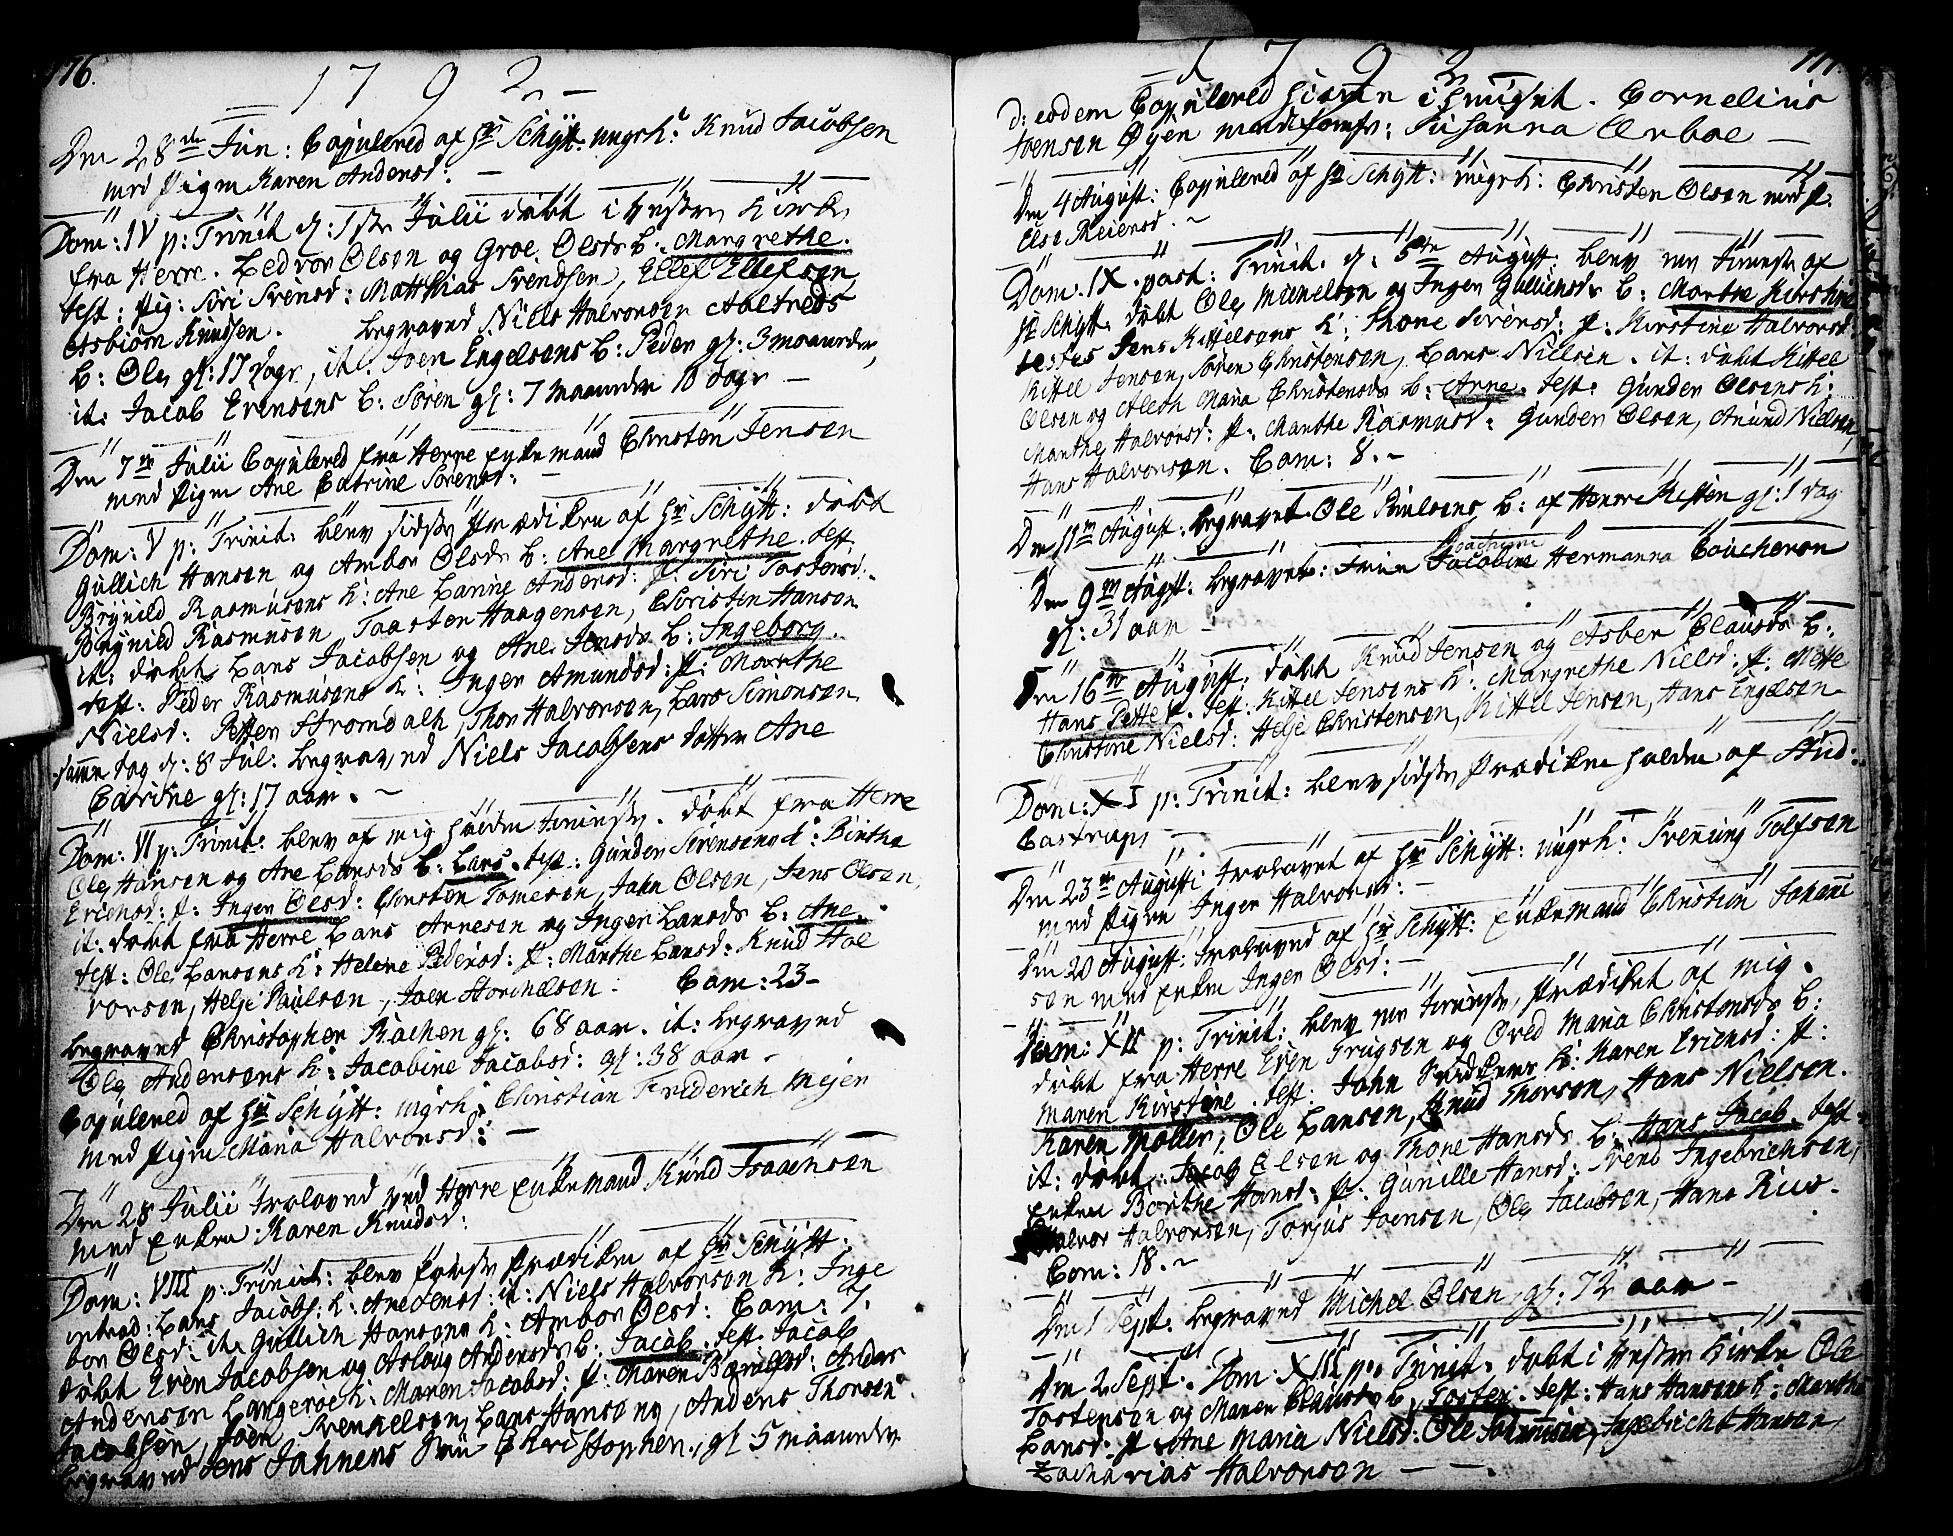 176.
1792
Den 28de Jun: Copulered af Hr Schÿtt: ungrk: Knud Jacobsen
med Pigen Karen Andersd:
Dom: IV p: Trinit d: 1ste Julii döbt i Kirke
fra Herre. Ledvor Olsen og Groe Olsds b: Margrethe.
test: Pig: Siri Svensd: Matthias Svendsen, Ellef Ellefsen
Asbiörn Knudsen. begraved Niels Halvorsen
b: Ole gl: 17 dage, it: Joen Engelsens b: Peder gl: 3 maaneder,
it: Jacob Ericsens b: Sören gl: 7 maaneder 10 dage
Den 7de Julii Copulered fra Herre Enkemand Christen Jensen
med Pigen Ane Catrine Sörensd:
Dom: V p: Trinit: blev sidste Prædiken af Hr Schÿtt: döbt
Gullich Hansen og Ambor Olsds b: Ane Margrethe. test:
Brynild Rasmusens K: Ane Larine Andersd: P: Siri Tostensd:
Brynild Rasmusen, Taarsten Haagensen, Christen Hansen
it: döbt Lars Jacobsen og Ane Jensds b: Ingeborg.
test: Peder Rasmusens K: Inger Amundsd: P: Marthe
Nielsd: Petter Stromdalh, Thor Halvorsen, Lars Simonsen
samme dag d: 8 Jul: begraved Niels Jacobsens datter Ane
Carine gl: 17 aar.
Dom: VI p: Trinit: blev af mig holden tieneste. döbt fra Herre
Ole Hansen og Ane Larsds b: Lars. test: Gunder Sörensens K: Birthe
Ericsd: P: Inger Olsd: Christen Tomesen, John Olsen, Jens Olsen,
it: döbt fra Herre Lars Arnesen og Inger Larsds b: Ane.
test: Ole Larsens K: Helene Pedersd: P: Marthe Larsd: Knud Hal
vorsen, Helje Paulsen, Joen Storchelsen. Com: 23
begraved Christopher Rachen gl: 68 aar. it: begraved
Ole Andersens K: Jacobine Jacobsd: gl: 38 aar.
Copulered af Hr Schÿtt: ungrk: Christian Friderich Mejer
med Pigen Maria Halvorsd:
Den 28 Julii trolovet ved Herre Enkemand Knud Isaacsen
med Enken Karen Knudsd:
Dom: VIII p: Trinit: blev første Prædiken af Hr Schÿtt:
introd: Lars Jacobs: K: Ane Jensd: it: Niels Halvorsen K: Inge
bor Olsd: it: Gullich Hansens K: Ambor Olsd: Com: 7.
döbt Even Jacobsen og Asloug Andersds b: Jacob. test: Jacob
Andersen Langeroe K: Maren Jacobsd: P: Maren Andres
Jacobsen, Joen Svenkelsen, Lars Hansens, Anders Thorsen
begraved Jens Jahnens Sön Christopher, gl: 5 maaneder
177.
1792
d: eodem Copulered hieme i huuset. Cornelius
Joensen Öyen med Jomfr: Susanna Arboe
Den 4 August: Copulered af Hr Schÿtt: ungrk: Christen Olsen med P:
Else Reiersd:
Dom: IX post: Trinit: d: 5te August: blev ret tieneste af
Hr Schÿtt. döbt Ole Michelsen og Inger Gulliensds b: Marthe Kirstine
testes Jens Kittelsens K: Thone Sörensd: P: Kirstine Halvorsd:
Kittel Jensen, Sören Christensen, Lars Nielsen. it: döbt Kittel
Olsen og Aleth Maria Christensds b: Arne. test: Gunder Olsens K:
Marthe Halvorsd: P: Marthe Rasmusd: Gunder Olsen, Anund Nielsen,
Hans Halvorsen. Com: 8.
Den 11te August: begravet Ole Paulsens b: af Herre gl: 1 dag
Den 9te August: begravet: Frue Joachime Jacobine Hermanna Coucheron
gl: 31 aar
Den 16de August: döbt Knud Jensen og Asber Clausds b:
Hans Petter. test: Kittel Jensens K: Margrethe Nielsd: P: Mette
Christine Nielsd: Helje Christensen, Kittel Jensen, Hans Engelsen
Dom: XI p: Trinit: blev sidste Prædiken holden af Stud:
Castrup
Den 23de August: trolovet af Hr Schÿtt: ungrk: Svenning Tolfsen
med Pigen Inger Halvorsd:
Den 20 August: trolovet af Hr Schÿtt: Enkemand Christian Johanne
sen med Enken Inger Olsd:
Dom: XII p: Trinit: blev ret tieneste, Prædiket af mig.
döbt fra Herre Even Trugsen og Öred Maria Christensds b:
Maren Kirstine. test: John K: Karen Ericsd: P:
Karen Möller, Ole Larsen, Knud Thorsen, Hans Nielsen.
it: döbt: Jacob Olsen og Thone Hansds b: Hans Jacob. test:
Enken Börthe Hansd: P: Gunille Hansd: Svend Ingebrichtsen,
Halvor Halvorsen, Torjus Joensen, Ole Jacobsen, Hans Riis.
Com: 18.
Den 1 Sept: begraved Michel Olsen, gl: 72 aar
Den 2 Sept: Dom: XIII p: Trinit: döbt i Kirke Ole
Tostensen og Maren b: Tosten. test: Hans Hansens K: Marthe
Larsd: P: Ane Maria Nielsd: Ole Ingebricht Hansen,
Zacharias Halvorsen